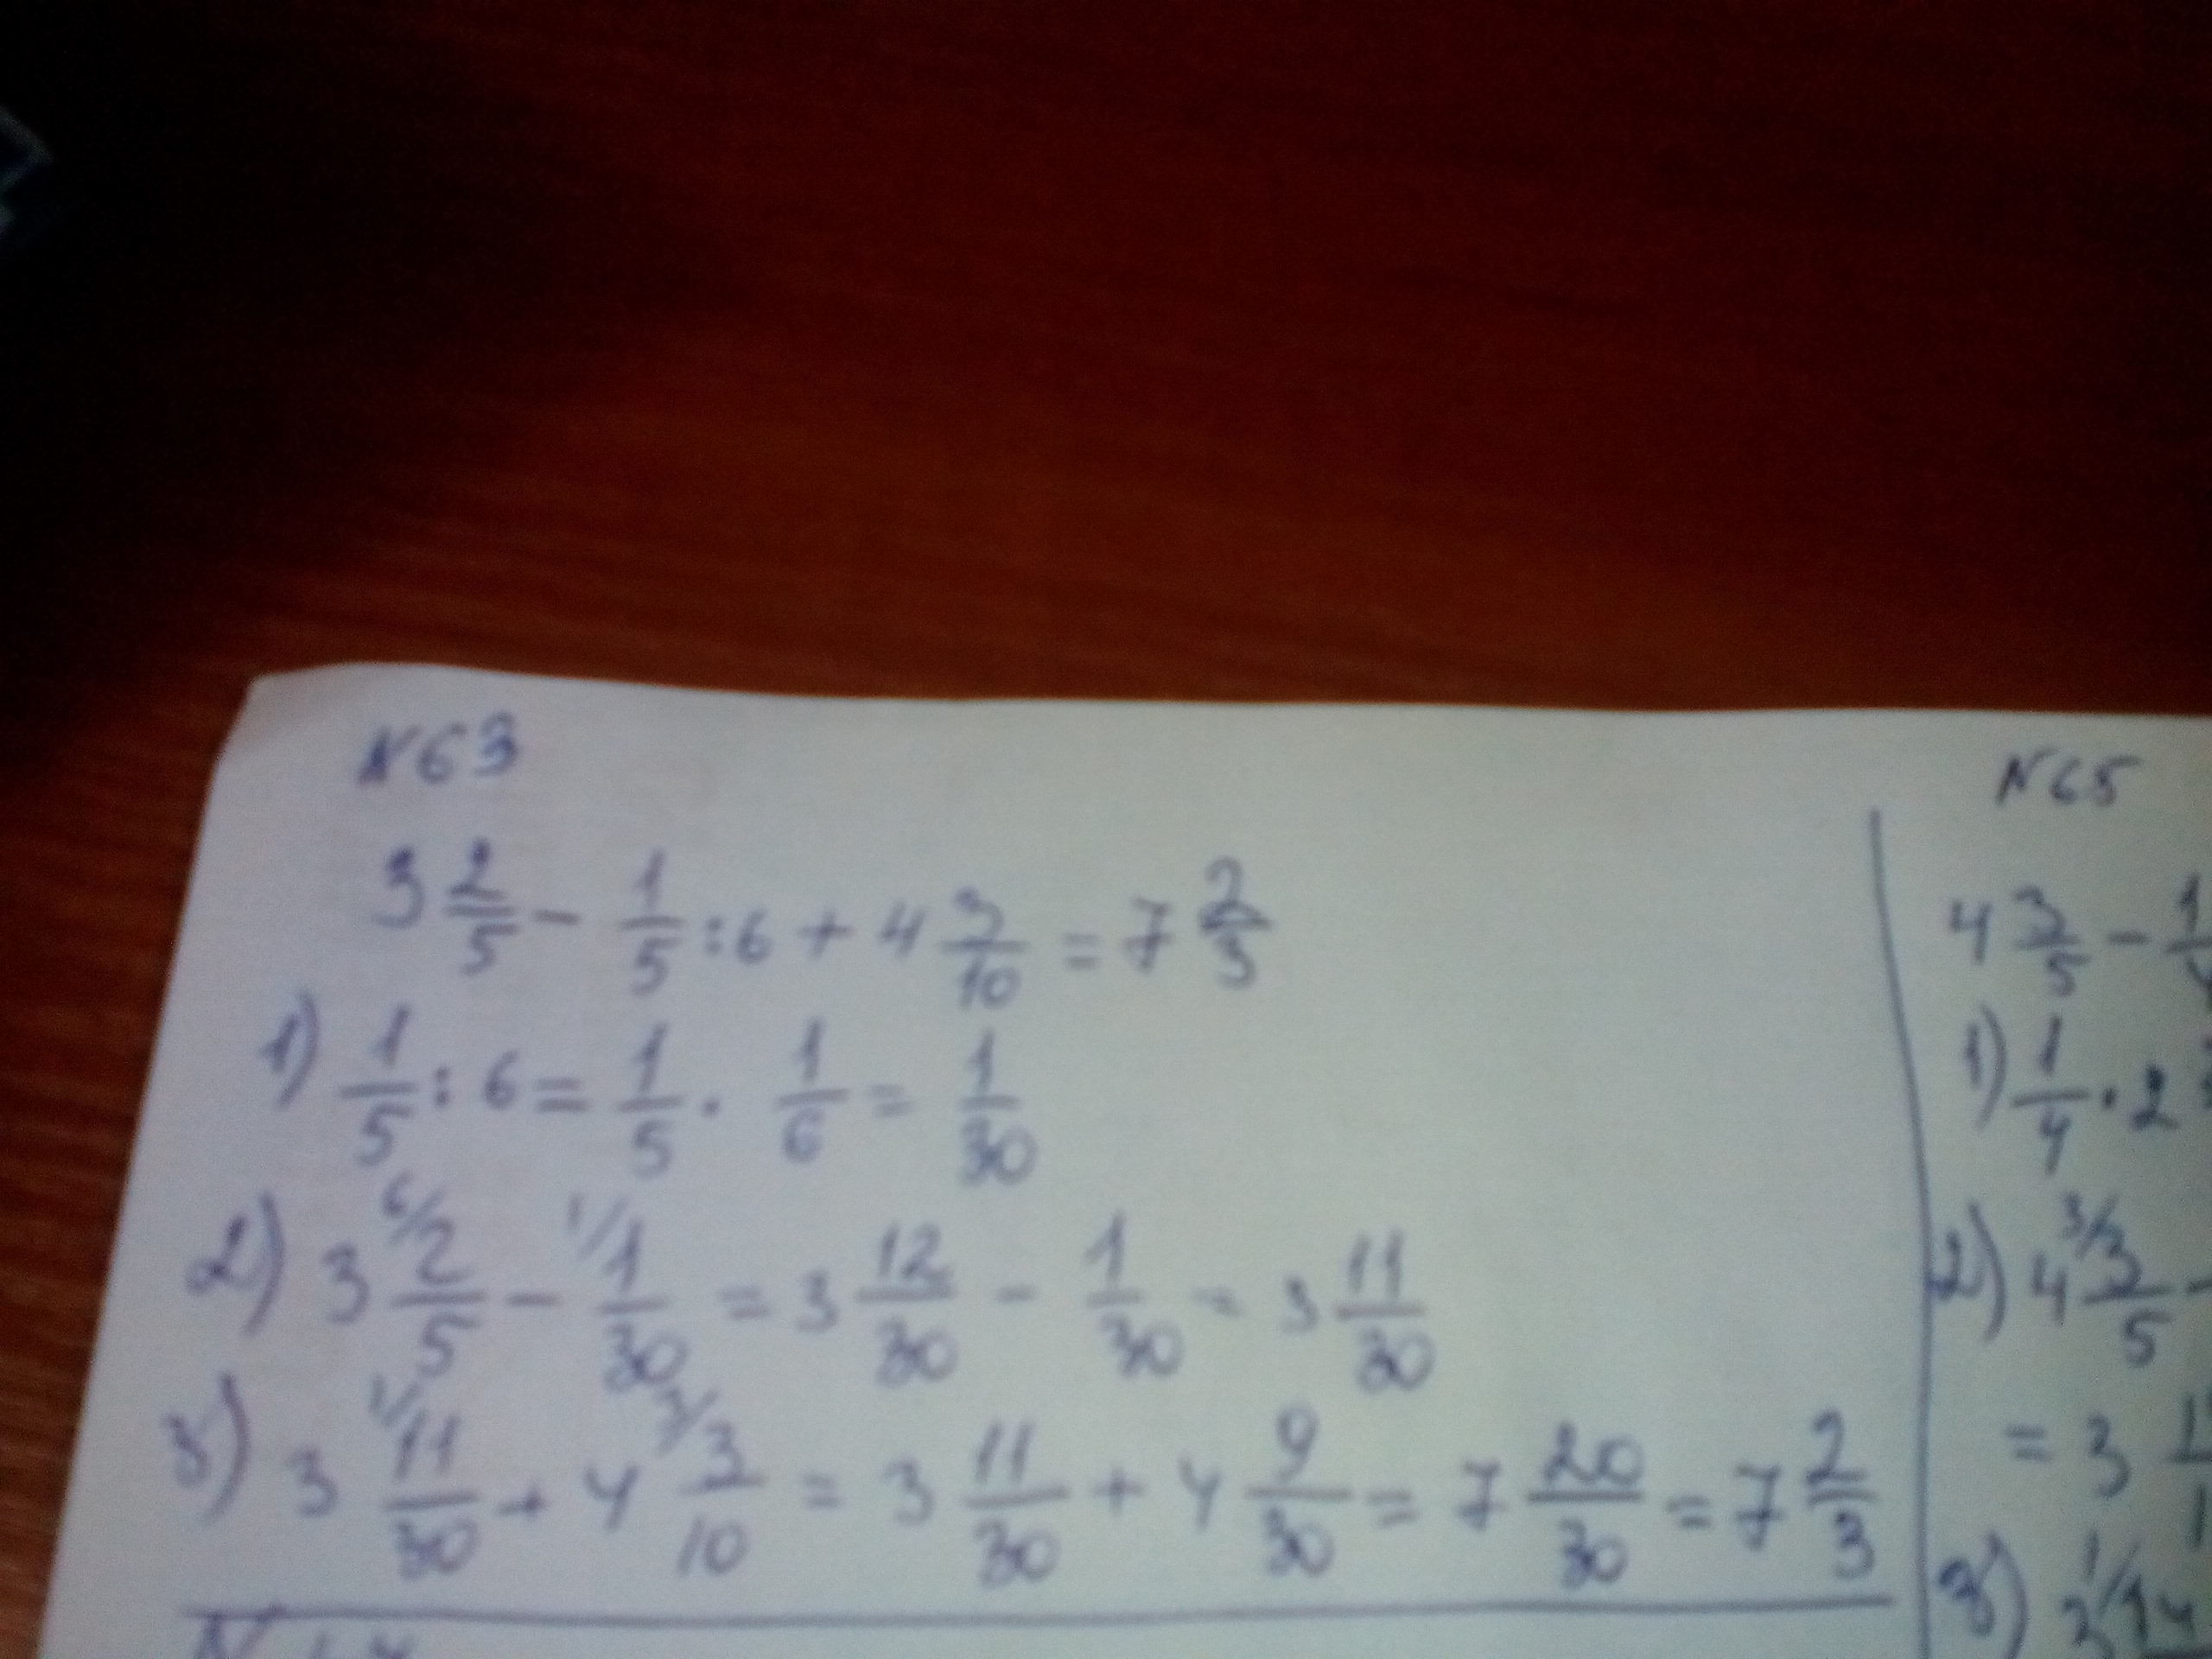 N 63
3 2/5 - 1/5 : 6 + 4 3/10 = 7 2/3
1) 1/5 : 6 = 1/5 · 1/6 = 1/30
2) 3 6/ 2/5 - 1/ 1/30 = 3 12/30 - 1/30 = 3 11/30
3) 3 1/ 11/30 + 4 3/ 3/10 = 3 11/30 + 4 9/30 = 7 20/30 = 7 2/3
N 65
4 3/5 - 1/4
1) 1/4 · 2
2) 4 3/ 3/5 -
= 3
3)